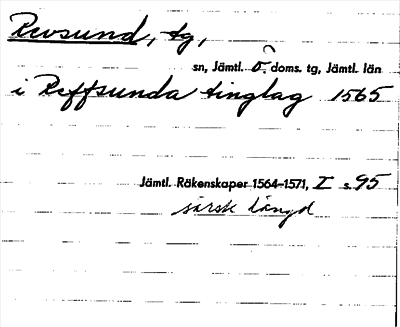 Revsund, tg,
sn, Jämtl. ö. doms. tg, Jämtl. län
i Reffsunda tinglag 1565
Jämtl. Räkenskaper 1564–1571, I s. 95
särsk längd